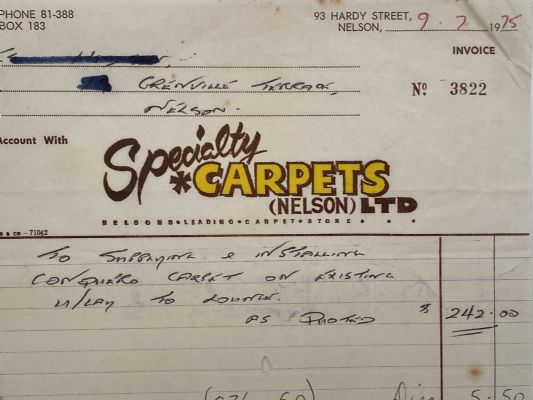 PHONE 81-388
BOX 183
93 HARDY STREET,
NELSON, 9.7 1975
INVOICE
GRENVILLE TERRACE,
NELSON.
No 3822
Account With
Specialty
*CARPETS
(NELSON) LTD
NELSONS • LEADING • CARPET • STORE • • •
& CO. - 71062
TO SUPPLYING & INSTALLING
CONQUERO CARPET ON EXISTING
U/LAY TO LOUNGE.
AS QUOTED $ 242.00
5.50